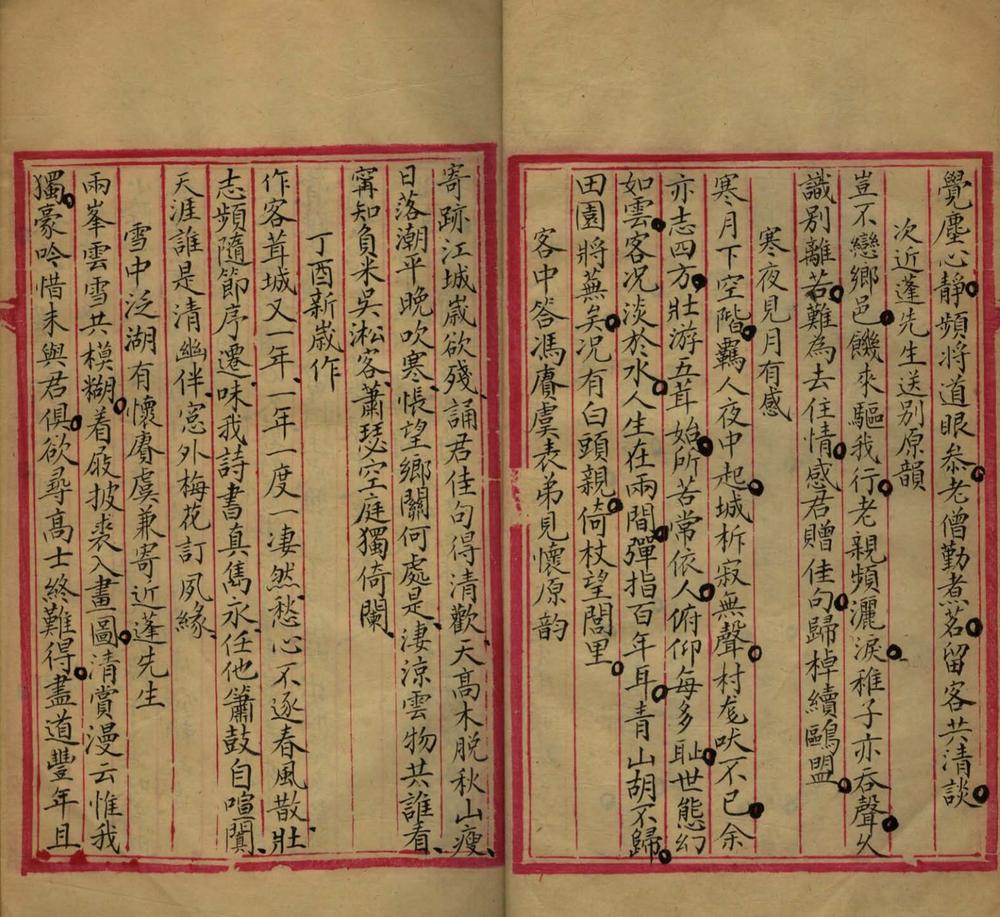 覺塵心靜頻將道眼叅老僧勤煮茗留客共清談
次近蓬先生送別原韻
豈不戀鄉邑饑來驅我行老親頻灑淚稚子亦吞聲久
識別離苦難為去住情感君贈佳句歸棹續鷗盟
寒夜見月有感
寒月下空階羈人夜中起城柝寂無聲村尨吠不已余
亦志四方壯游五茸始所苦常依人俯仰每多恥世態幻
如雲客况淡於水人生在兩間彈指百年耳青山胡不歸
田園將蕪矣况有白頭親倚杖望閭里
客中答馮賡虞表弟見懷原韵
寄跡江城歲欲殘誦君佳句得清歡天高木脫秋山瘦
日落潮平晚吹寒悵望鄉關何處是淒涼雲物共誰看
寗知負米吳淞客蕭瑟空庭獨倚闌
丁酉新歲作
作客茸城又一年一年一度一凄然愁心不逐春風散壯
志頻隨節序遷味我詩書真雋永任他簫鼓自喧闐
天涯誰是清幽伴窓外梅花訂夙緣
雪中泛湖有懷賡虞兼寄近蓬先生
兩峯雲雪共模糊着屐披裘入畫圖清賞漫云惟我
獨豪吟惜未與君俱欲尋高士終難得盡道豐年且